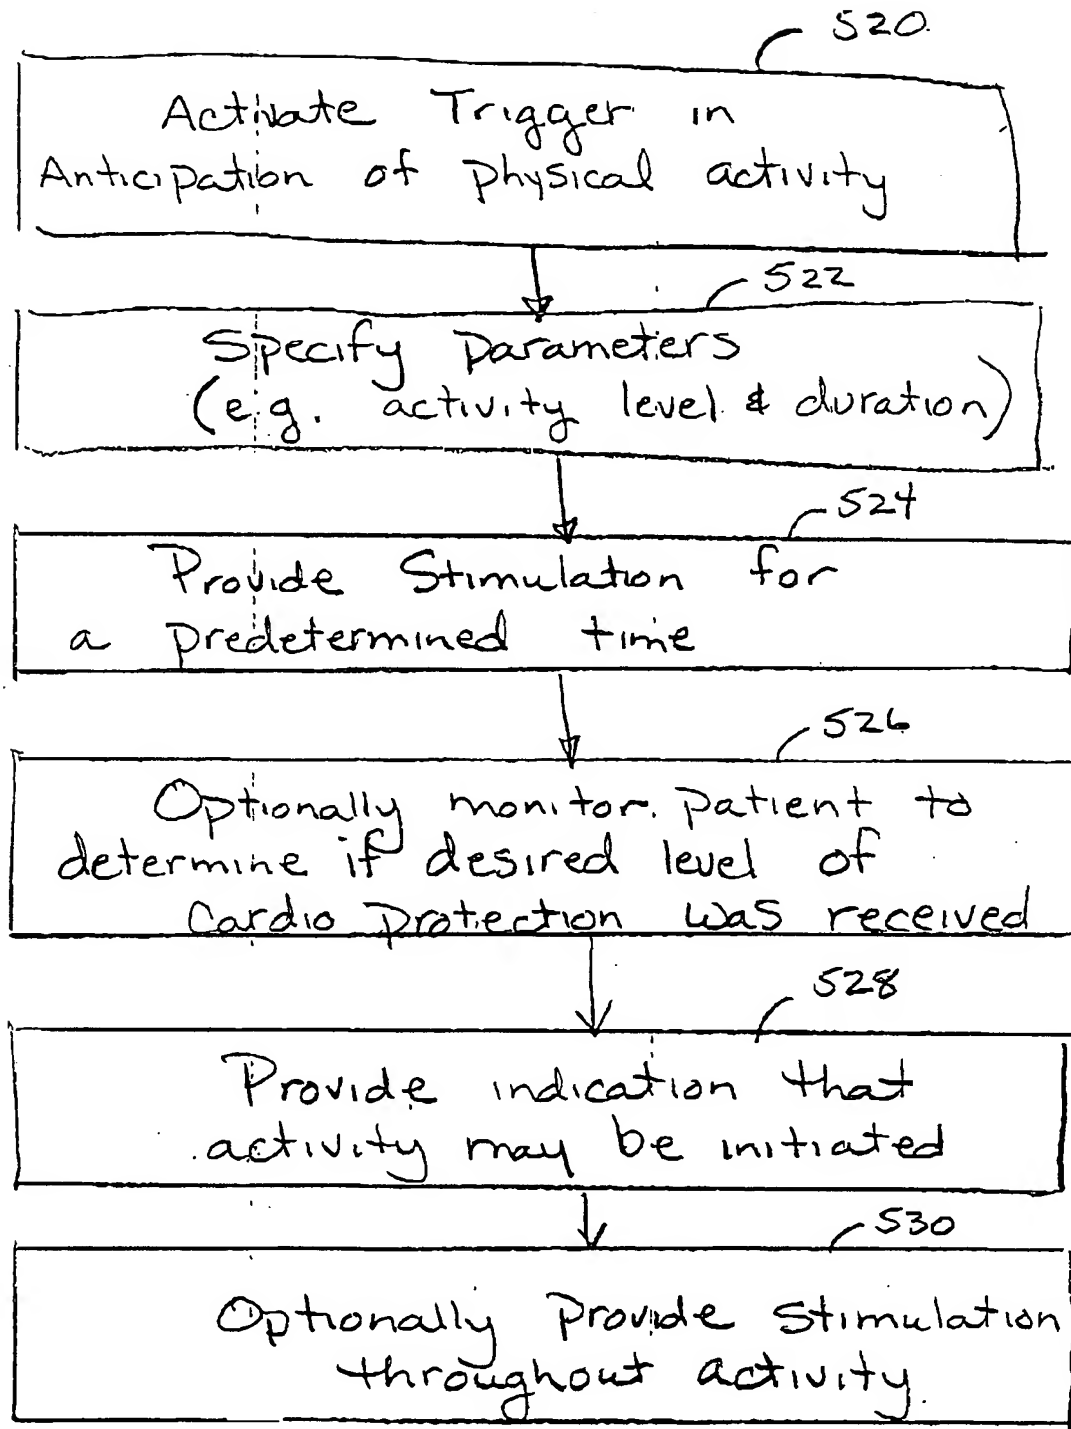 520
Activate Trigger in
Anticipation of physical activity
522
Specify parameters
(e.g. activity level & duration)
524
Provide Stimulation for
a predetermined time
526
Optionally monitor patient to
determine if desired level of
Cardio protection was received
528
Provide indication that
activity may be initiated
530
Optionally provide stimulation
throughout activity.